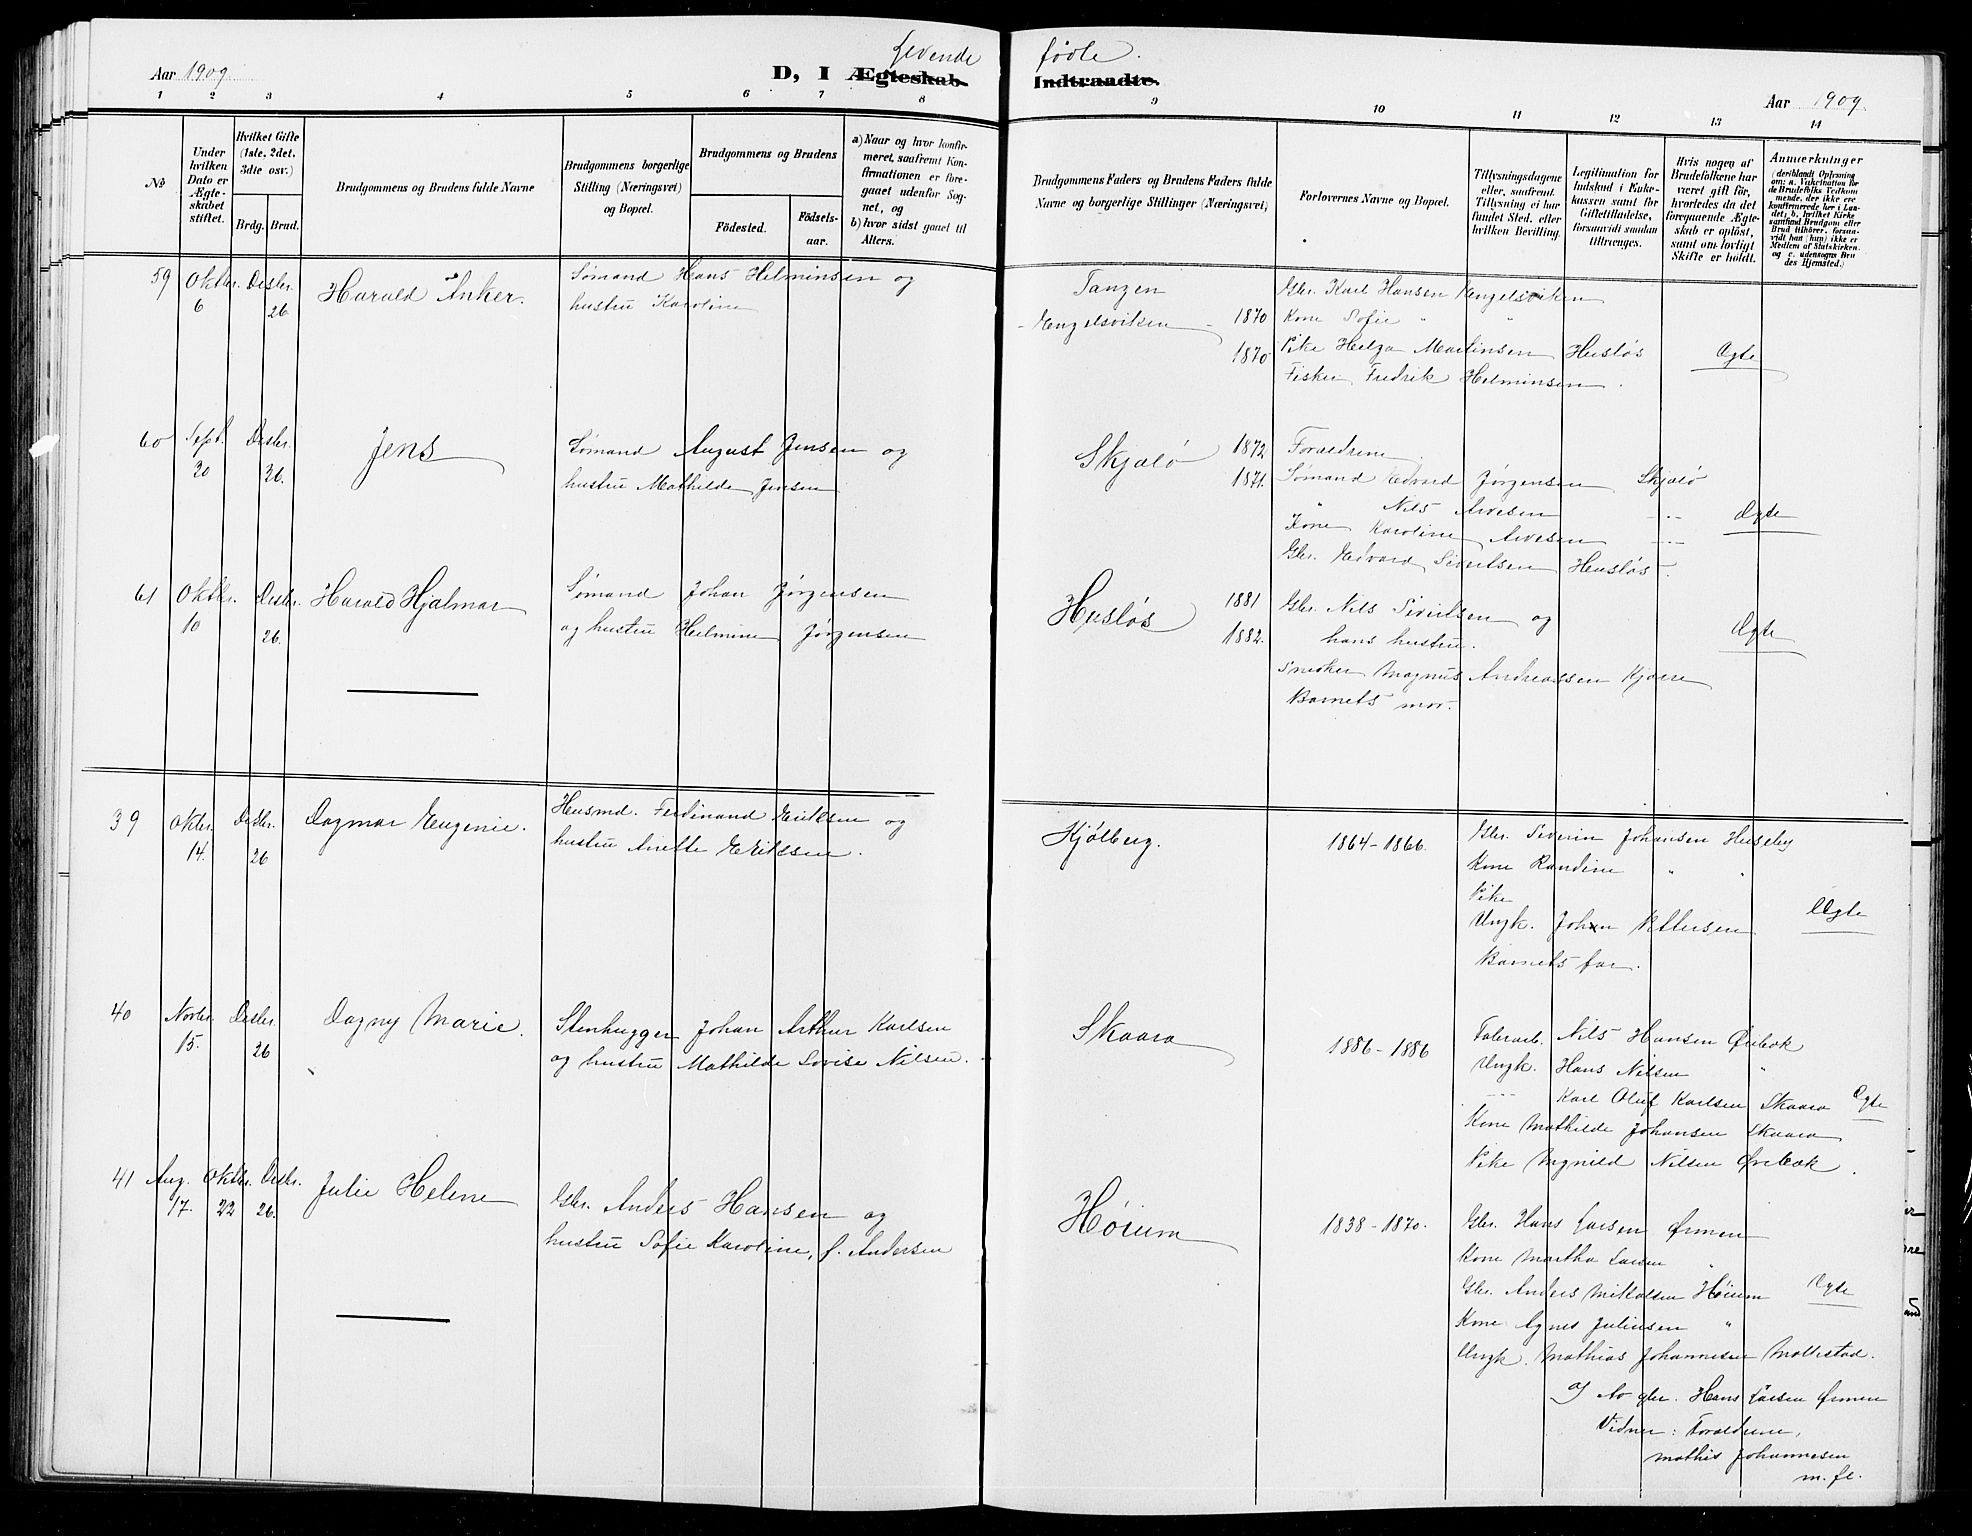 Levende fødte.
Aar 1909
D, I Ægteskab Indtraadte.
Aar 1909.
1 2 3 4 5 6 7 8 9 10 11 12 13 14
No
Under hvilken Dato er Ægteskabet stiftet.
Hvilket Gifte (1ste, 2det, 3die osv.)
Brdg. Brud.
Brudgommens og Brudens fulde Navne
Brudgommens borgerlige Stilling (Næringsvei) og Bopæl.
Brudgommens og Brudens
Fødested.
Fødselsaar.
a) Naar og hvor konfirmeret, saafremt Konfirmationen er foregaaet udenfor Sognet, og
b) hvor sidst gaaet til Alters.
Brudgommens Faders og Brudens Faders fulde Navne og borgerlige Stillinger (Næringsvei)
Forlovernes Navne og Bopæl.
Tillysningsdagene eller, saafremt Tillysning ei har fundet Sted, efter hvilken Bevilling.
Legitimation for Indskud i Enkekassen samt for Giftetilladelse, forsaavidt saadan tiltrænges.
Hvis nogen af Brudefolkene har været gift før, hvorledes da det foregaaende Ægteskab er opløst, samt om lovligt Skifte er holdt.
Anmærkninger
(deriblandt Oplysning om: a. Vakcination for de Brudefolks Vedkommende, der ikke ere konfirmerede her i Landet; b. hvilket Kirkesamfund Brudgom eller Brud tilhører, forsaavidt han (hun) ikke er Medlem af Statskirken og c. udensogns Brudes Hjemsted.)
59 Oktbr. 6 Desbr. 26 Harald Anker. Sømand Hans Helminsen og
hustru Karoline
Tangen
Engelsviken 1870
1870
Gbr. Karl Hansen Engelsviken
Kone Sofie " "
Pike Helga Martinsen Husløs
Fisker Fredrik Helminsen.
Ægte
60 Sept. 20 Desbr. 26. Jens Sømand August Jensen og
hustru Mathilde Jensen
Skjælø 1872
1871.
Forældrene
Sømand Edvard Jørgensen Skjælø
" Nils Arvesen -..-
Kone Karoline Arvesen -..-
Gbr. Edvard Sivertsen Husløs.
Ægte
61 Oktbr. 10 Desbr. 26. Harald Hjalmar Sømand Johan Jørgensen
og hustru Helmine Jørgensen
Husløs 1881
1882.
Gbr. Nils Sivertsen og
hans hustru.
Snedker Magnus Andreassen Kjære
Barnets mor.
Ægte
39 Oktbr. 14. Desbr. 26 Dagmar Eugenie. Husmd. Ferdinand Eriksen og
hustru Anette Eriksen.
Kjølberg. 1864-1866.
Gbr. Severin Johansen Huseby
Kone Randine " "
Pike
Ungk. Johan Pettersen
Barnets far.
Ægte
40 Novbr. 15. Desbr. 26 Dagny Marie. Stenhugger Johan Arthur Karlsen
og hustru Mathilde Lovise Nilsen.
Skaara 1886-1886
Fabrarb. Nils Hansen Ørebæk
Ungk. Hans Nilsen "
--- Karl Oluf Karlsen Skaara
Kone Mathilde Johansen Skaara
Pike Ingvild Nilsen Ørebæk.
Ægte
41 Aug. 17. Oktbr. 22 Desbr. 26. Julie Helene Gbr. Anders Hansen og
hustru Sofie Karoline, f. Andersen
Høium 1838-1870.
Gbr. Hans Larsen Ørmen
Kone Martha Larsen "
Gbr. Anders Mikalsen Høium
Kone Agnes Juliusen "
Ungk. Mathias Johannesen Mollestad.
Ægte
a) Av gbr. Hans Larsen Ørmen
Vidner: Forældrene,
Mathis Johannesen
m. fl.